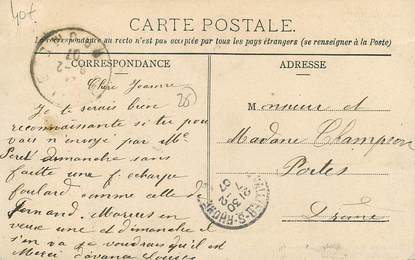 40€
CARTE POSTALE
La correspondance au recto n'est pas acceptée par tous les pays étrangers (se renseigner à la Poste)
CORRESPONDANCE
ADRESSE
Chère Jeanne
Je te serais bien
reconnaissante si tu pou
vais m'envoyé par Me
Peret dimanche sans
faute une f. echarge
foulard comme celle de
Fernand. Marius en
veux une et dimanche il
s'en va je voudrais qu'il est
Merci d'avance Louise
26
Monsieur et
Madame Champion
Portes
Drôme